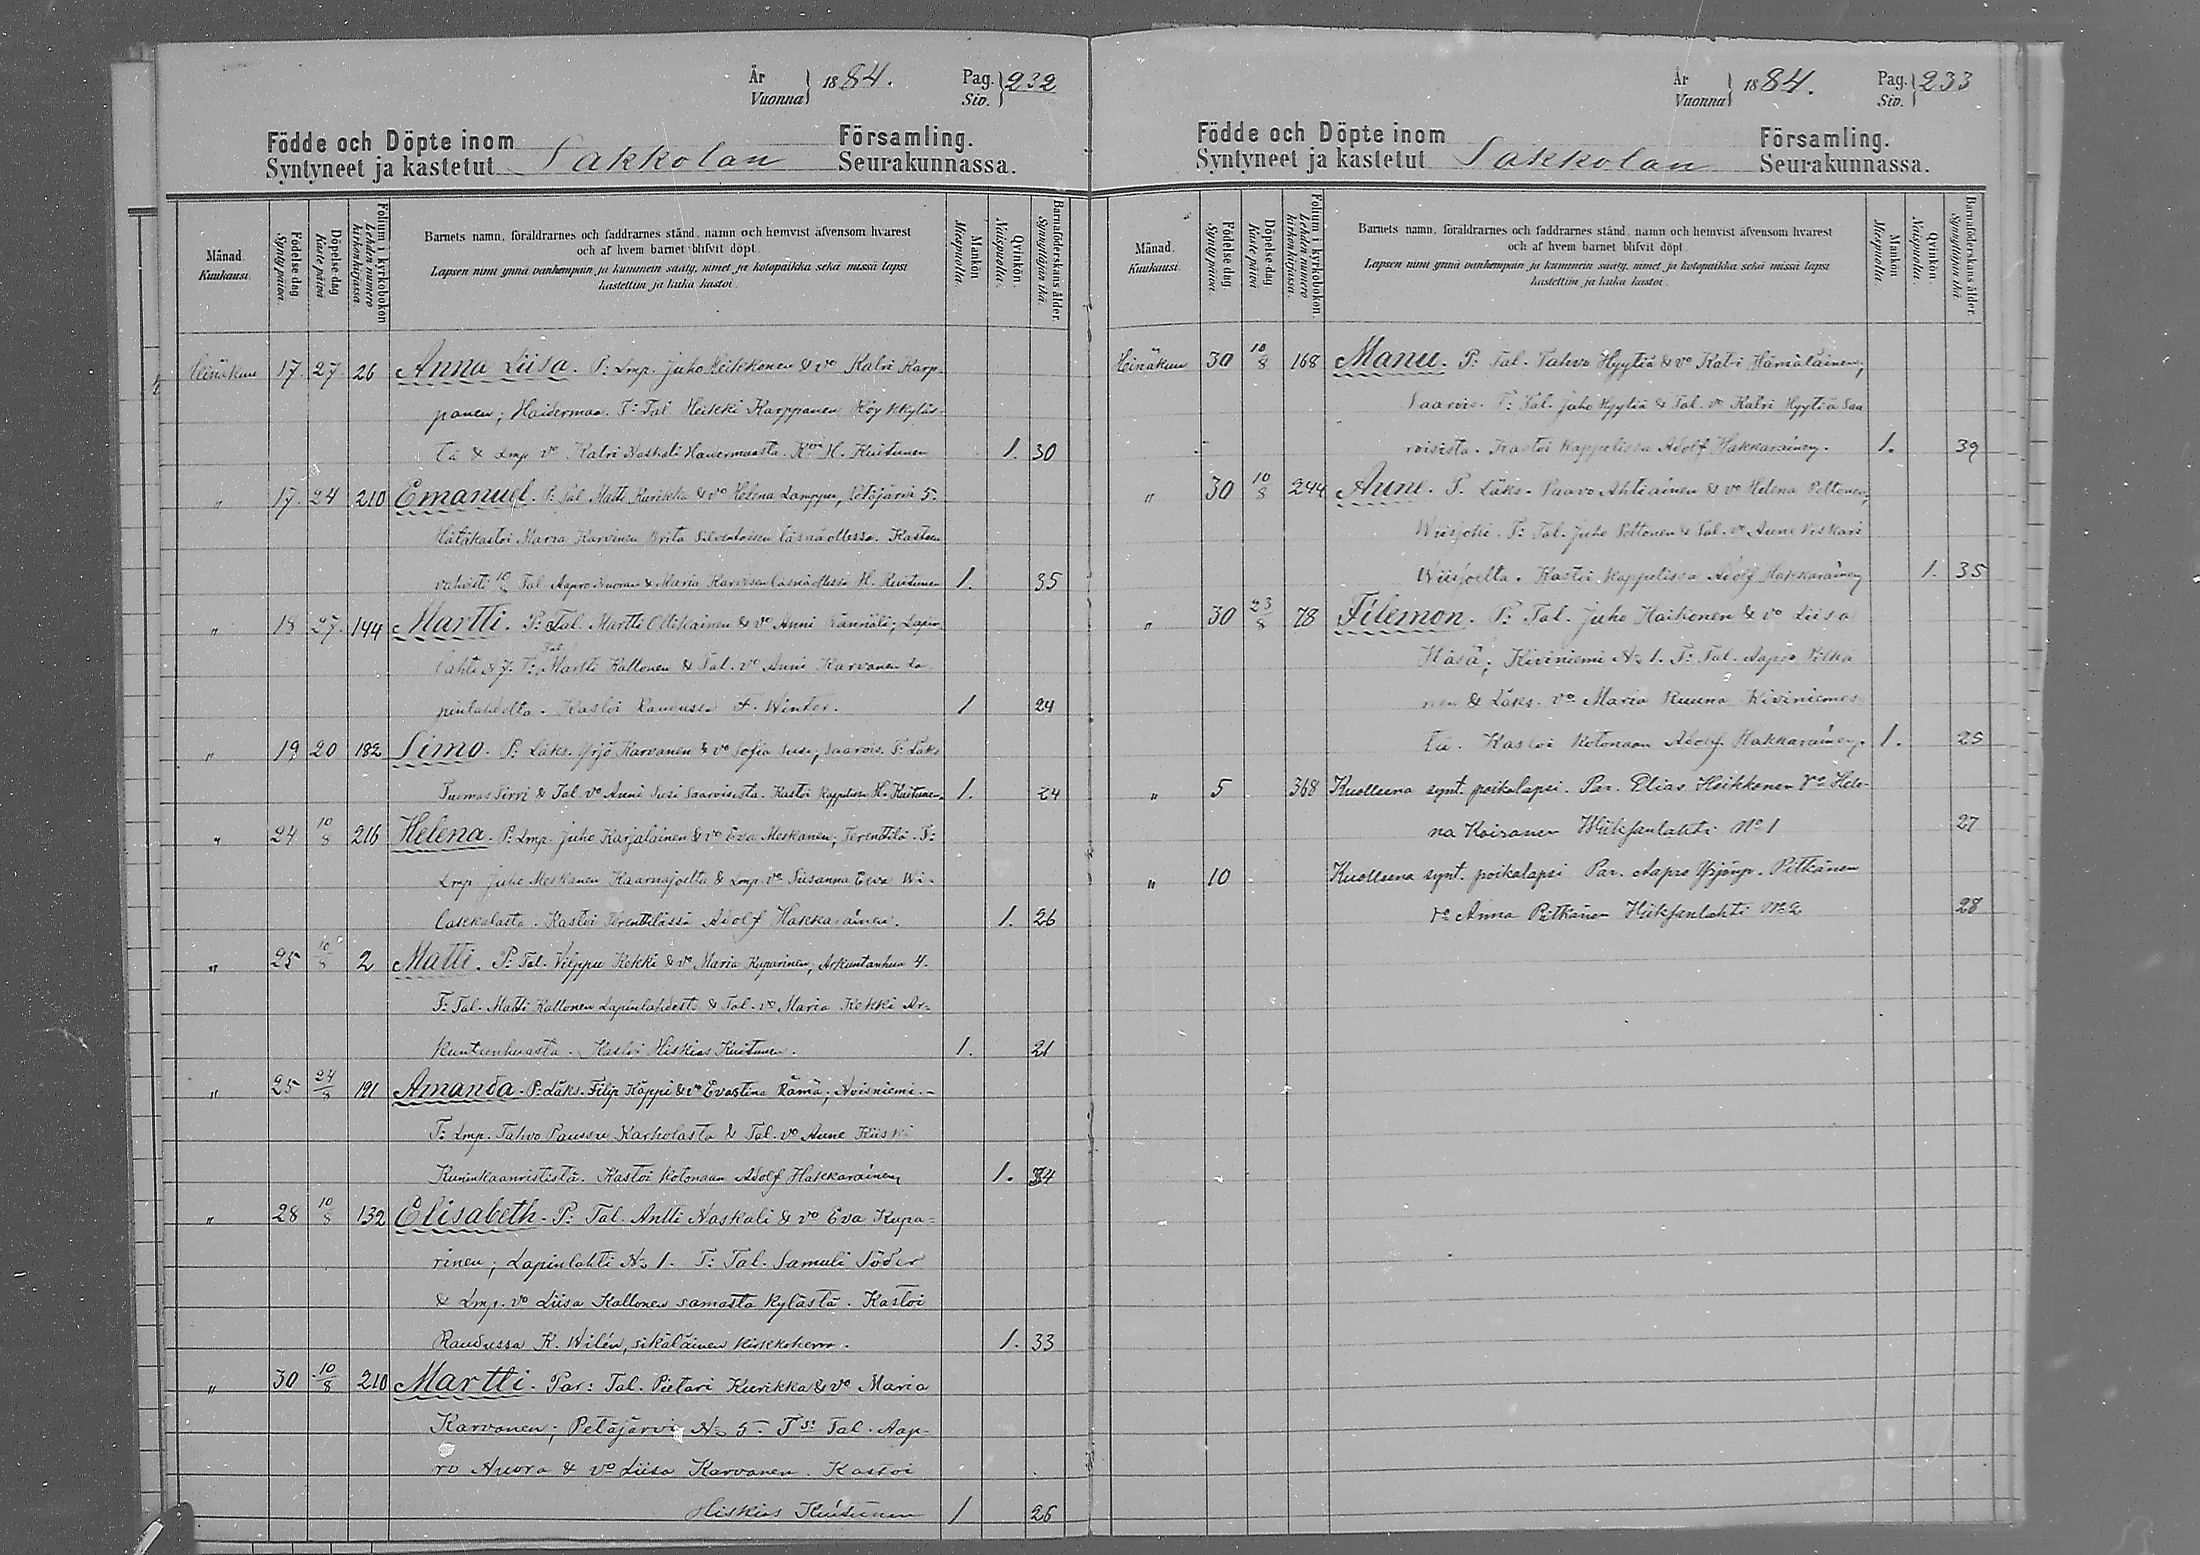 År
Vuonna } 1884. Pag.
Siv. } 232
Födde och Döpte inom Församling.
Syntyneet ja kastetut Sakkolan Seurakunnassa.
Månad.
Kuukausi.
Födelse-dag.
Syntymäpäivä.
Döpelse-dag.
Kaste päivä.
Folium i kyrkoboken.
Lehden numero
kirkonkirjassa.
Barnets namn, föräldrarnes och faddrarnes stånd, namn och hemvist äfvensom hvarest
och af hvem barnet blifvit döpt.
Lapsen nimi ynnä vanhempain ja kummein sääty, nimet ja kotopaikka sekä missä lapsi
kastettiin ja kuka kastoi.
Mankön.
Miespuolia.
Qvinkön.
Naispuolia.
Barnaföderskans ålder.
Synnyttäjän ikä.
Heinäkuu 17. 27. 26 Anna Liisa. P: Lmp. Juho Heikkonen & vo Katri Karp-
panen; Haitermaa. T: Tal. Heikki Karppanen Röykkyläs-
tä & Lmp vo Katri Naskali Haitermaasta. K:oi H. Kuitunen 1. 30
" 17. 24 210 Emanuel. P: Tal. Matti Kurikka & vo Helena Lamppu, Petäjärvi 5.
Hätäkastoi Maria Karvinen Brita Silventoisen läsnäollessa. Kasteen
vahvisti 10/8 Tal Aapro Nuoran & Maria Karvisen läsnäollessa H. Kuitunen 1. 35
" 18 27. 144 Martti. P: Tal. Martti Ollikainen & vo Anni Rännäli, Lapin-
lahti & 7. T: Tal. Martti Kaltonen & Tal. vo Anni Karvanen La-
pinlahdelta. Kastoi Raudussa F. Winter. 1 24
" 19 20 182 Simo. P: Läks. Yrjö Karvanen & vo Sofia Susi, Saarois. T: Läks
Tuomas Sirvi & Tal. vo Anni Susi Saaroisista. Kastoi Kappelissa H. Kuitunen. 1. 24
" 24 10/8 216 Helena. P: Lmp. Juho Karjalainen & vo Eva Meskanen; Terenttilä. T:
Lmp. Juho Meskanen Haarnajoelta & Lmp. vo Susanna Eeva Wi-
lakkalasta. Kastoi Terenttilässä Adolf Hakkarainen. 1. 26
" 25 10/8 2 Matti. P: Tal. Vilppu Kekki & vo Maria Kuparinen, Arkuntanhua 4.
T: Tal. Matti Kaltonen Lapinlahdesta & Tal. vo Maria Kekki Ar-
kuntanhuasta. Kastoi Hiskias Kuitunen. 1. 21
" 25 24/8 191 Amanda. P: Läks. Filip Käppi & vo Evastina Rämä; Noisniemi.
T: Lmp. Tahvo Paussu Karholasta & Tal. vo Anne Kiiski
Kuninkaanrististä. Kastoi kotonaan Adolf Hakkarainen 1. 34
" 28 10/8 132 Elisabeth. P: Tal. Antti Naskali & vo Eva Kupa-
rinen; Lapinlahti No 1. T: Tal. Samuli Söder
& Lmp. vo Liisa Kaltonen samasta kylästä. Kastoi
Raudussa K. Wilén, sikäläinen kirkkoherra. 1. 33
" 30 10/8 210 Martti. Par: Tal. Pietari Kurikka & vo Maria
Karvonen; Petäjärvi No 5. T:st Tal. Aap-
ro Nuora & vo Liisa Karvanen. Kastoi
Hiskias Kuitunen 1 26
År
Vuonna } 1884. Pag.
Siv. } 233
Födde och Döpte inom Församling.
Syntyneet ja kastetut Sakkolan Seurakunnassa.
Månad.
Kuukausi.
Födelse-dag.
Syntymäpäivä.
Döpelse-dag.
Kaste päivä.
Folium i kyrkoboken.
Lehden numero
kirkonkirjassa.
Barnets namn, föräldrarnes och faddrarnes stånd, namn och hemvist äfvensom hvarest
och af hvem barnet blifvit döpt.
Lapsen nimi ynnä vanhempain ja kummein sääty, nimet ja kotopaikka sekä missä lapsi
kastettiin ja kuka kastoi.
Mankön.
Miespuolia.
Qvinkön.
Naispuolia.
Barnaföderskans ålder.
Synnyttäjän ikä.
Heinäkuu 30 10/8 168 Manu. P: Tal. Tahvo Hyytiä & vo Katri Hämäläinen,
Saarois. T: Tal. Juho Hyytiä & Tal. vo Katri Hyytiä Saa
roisista. Kastoi Kappelissa Adolf Hakkarainen. 1. 39
" 30 10/8 244 Anne. P. Läks. Paavo Ahtiainen & vo Helena Peltonen,
Wiisjoki. T: Tal. Juho Peltonen & Tal. vo Anne Kiskari
Wiisjoelta. Kastoi Kappelissa Adolf Hakkarainen 1. 35
" 30 23/8 78 Filemon. P: Tal. Juho Haikonen & vo Liisa
Häsä; Kiviniemi No 1. T: Tal. Aapro Pitkä
nen & Läks. vo Maria Ruuna Kiviniemes
tä. Kastoi kotonaan Adolf Hakkarainen. 1. 25
" 5 368 Kuolleena synt. poikalapsi. Par. Elias Heikkonen Vo Hele-
na Koisanen Wiiksanlahti No 1 27
" 10 Kuolleena synt. poikalapsi Par. Aapro Yrjönp. Pitkänen
vo Anna Pitkänen Hiiksanlahti No 2 28